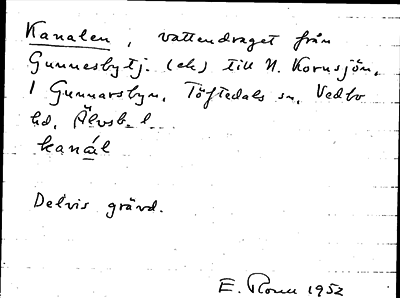 Kanalen, vattendraget från
Gunnesbytj. (ek) till N. Kornsjön,
i Gunnarsbyn, Töftedals sn, Vedbo
hd, Älvsb. l.
kanál
Delvis grävd.
E. 1952